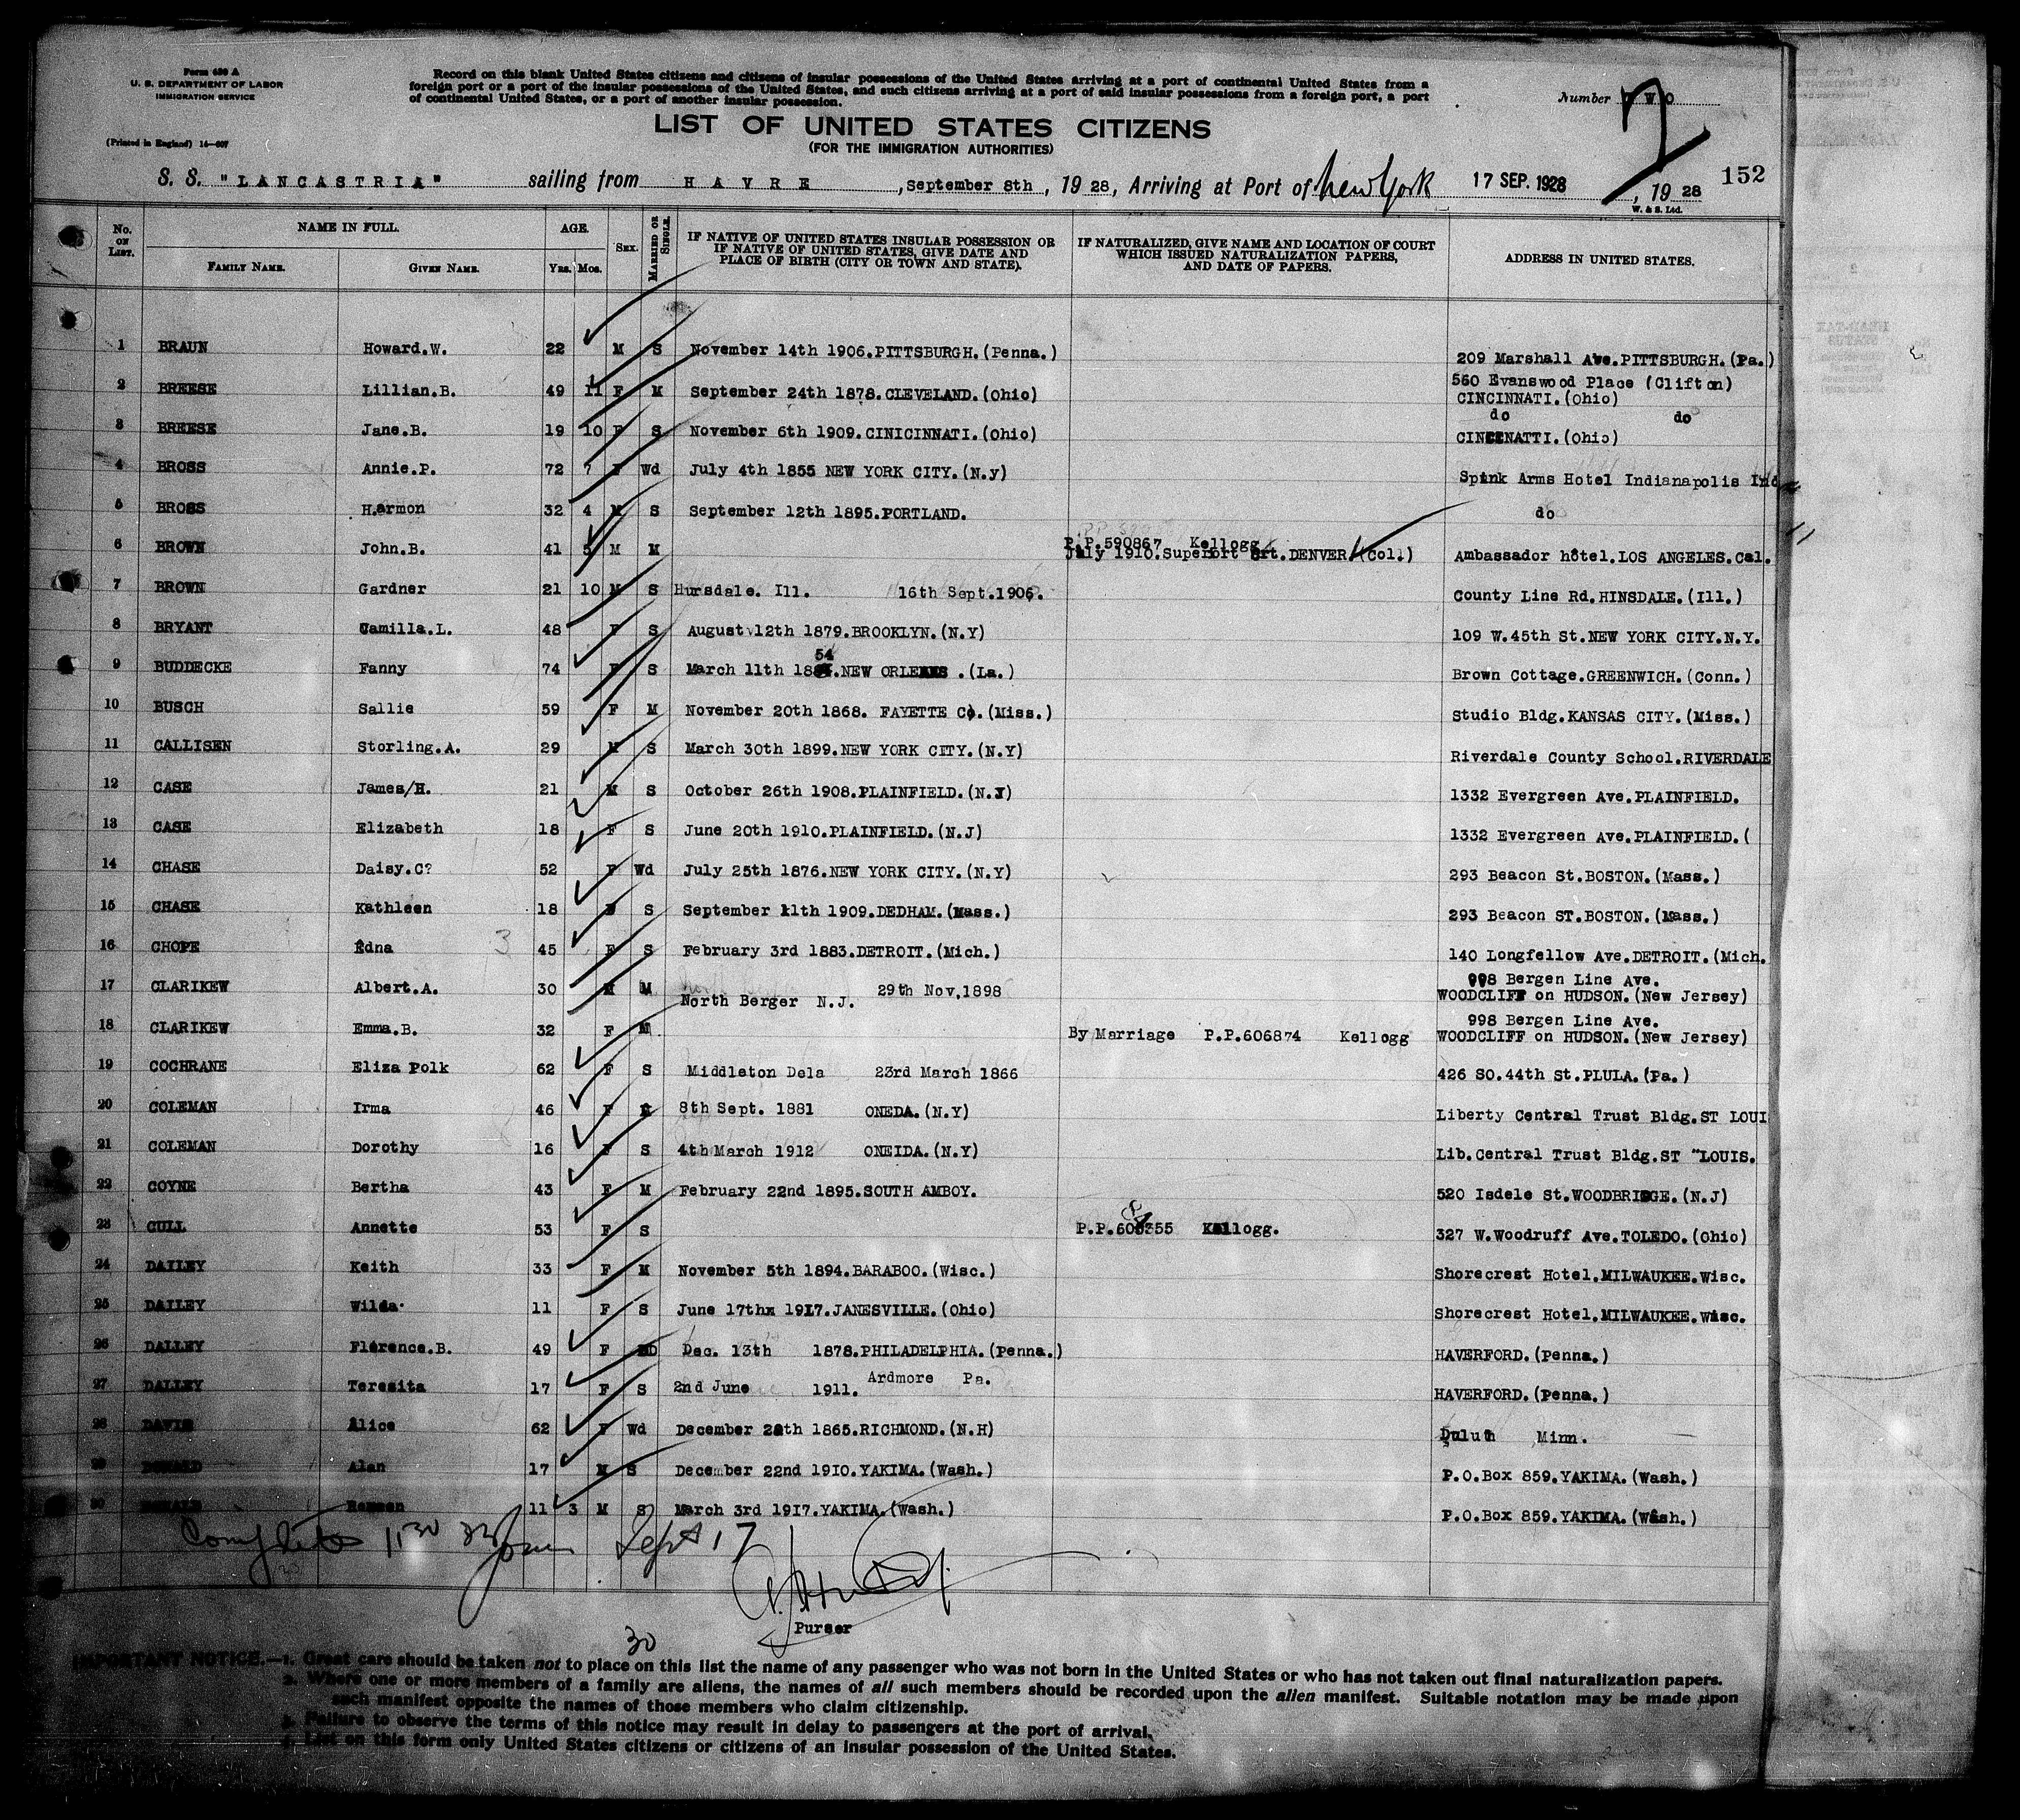 Form 630 A
U. S. DEPARTMENT OF LABOR
IMMIGRATION SERVICE
(Printed in England) 14—607
Record on this blank United States citizens and citizens of insular possessions of the United States arriving at a port of continental United States from a
foreign port or a port of the insular possessions of the United States, and such citizens arriving at a port of said insular possessions from a foreign port, a port
of continental United States, or a port of another insular possession.
Number TWO
2
LIST OF UNITED STATES CITIZENS
(FOR THE IMMIGRATION AUTHORITIES)
152
S. S. "LANCASTRIA" sailing from HAVRE, September 8th, 1928, Arriving at Port of New York 17 SEP. 1928, 1928
W. & S. Ltd.
No. on List. NAME IN FULL. AGE. Sex. Married or Single. IF NATIVE OF UNITED STATES INSULAR POSSESSION OR IF NATIVE OF UNITED STATES, GIVE DATE AND PLACE OF BIRTH (CITY OR TOWN AND STATE). IF NATURALIZED, GIVE NAME AND LOCATION OF COURT WHICH ISSUED NATURALIZATION PAPERS, AND DATE OF PAPERS. ADDRESS IN UNITED STATES.
Family Name. Given Name. Yrs. Mos.
1 BRAUN Howard.W. 22 M S November 14th 1906.PITTSBURGH.(Penna.) 209 Marshall Ave.PITTSBURGH.(Pa.)
2 BREESE Lillian.B. 49 11 F M September 24th 1878.CLEVELAND.(Ohio) 560 Evanswood Place (Clifton)
CINCINNATI.(Ohio)
3 BREESE Jane.B. 19 10 F S November 6th 1909.CINICINNATI.(Ohio) do do
CINCENATTI.(Ohio)
4 BROSS Annie.P. 72 7 F Wd July 4th 1855 NEW YORK CITY.(N.y) Spink Arms Hotel Indianapolis Ind
5 BROSS H.armon 32 4 M S September 12th 1895.PORTLAND. do
6 BROWN John.B. 41 5 M M P.P.590867 Kellogg
July 1910.Superiort Crt.DENVER.(Col.) Ambassador hôtel.LOS ANGELES.Cal.
7 BROWN Gardner 21 10 M S Hursdale. Ill. 16th Sept.1906. County Line Rd.HINSDALE.(Ill.)
8 BRYANT Camilla.L. 48 F S August 12th 1879.BROOKLYN.(N.Y) 109 W.45th St.NEW YORK CITY.N.Y.
9 BUDDECKE Fanny 74 F S March 11th 1854.NEW ORLEANS .(La.) Brown Cottage.GREENWICH.(Conn.)
10 BUSCH Sallie 59 F M November 20th 1868. FAYETTE Co.(Miss.) Studio Bldg.KANSAS CITY.(Miss.)
11 CALLISEN Storling.A. 29 M S March 30th 1899.NEW YORK CITY.(N.Y) Riverdale County School.RIVERDALE
12 CASE James/H. 21 M S October 26th 1908.PLAINFIELD.(N.J) 1332 Evergreen Ave.PLAINFIELD.
13 CASE Elizabeth 18 F S June 20th 1910.PLAINFIELD.(N.J) 1332 Evergreen Ave.PLAINFIELD.(
14 CHASE Daisy.C? 52 F Wd July 25th 1876.NEW YORK CITY.(N.Y) 293 Beacon St.BOSTON.(Mass.)
15 CHASE Kathleen 18 F S September 11th 1909.DEDHAM.(Mass.) 293 Beacon ST.BOSTON.(Mass.)
16 CHOPE Edna 3 45 F S February 3rd 1883.DETROIT.(Mich.) 140 Longfellow Ave.DETROIT.(Mich.
17 CLARIKEW Albert.A. 30 M M North Berger N.J. 29th Nov,1898 998 Bergen Line Ave.
WOODCLIFF on HUDSON.(New Jersey)
18 CLARIKEW Emma.B. 32 F M By Marriage P.P.606874 Kellogg 998 Bergen Line Ave.
WOODCLIFF on HUDSON.(New Jersey)
19 COCHRANE Eliza Polk 62 F S Middleton Dela 23rd March 1866 426 SO.44th St.PLULA.(Pa.)
20 COLEMAN Irma 46 F M 8th Sept. 1881 ONEDA.(N.Y) Liberty Central Trust Bldg.ST LOUI
21 COLEMAN Dorothy 16 F S 4th March 1912 ONEIDA.(N.Y) Lib.Central Trust Bldg.ST "LOUIS.
22 COYNE Bertha 43 F M February 22nd 1895.SOUTH AMBOY. 520 Isdele St.WOODBRIDGE.(N.J)
23 CULL Annette 53 F S Kellogg. 327 W.Woodruff Ave.TOLEDO.(Ohio)
24 DAILEY Keith 33 F M November 5th 1894.BARABOO.(Wisc.) Shorecrest Hotel.MILWAUKEE.Wisc.
25 DAILEY Wilda 11 F S June 17thx 1917.JANESVILLE.(Ohio) Shorecrest Hotel.MILWAUKEE.Wisc.
26 DALLEY Florence.B. 49 F Dec. 13th 1878.PHILADELPHIA.(Penna.) HAVERFORD.(Penna.)
27 DALLEY Teresita 17 F S 2nd June 1911. Ardmore Pa. HAVERFORD.(Penna.)
28 DAVIS Alice 62 F Wd December 28th 1865.RICHMOND.(N.H) Duluth Minn.
29 DONALD Alan 17 M S December 22nd 1910.YAKIMA.(Wash.) P.O.Box 859.YAKIMA.(Wash.)
30 DONALD 11 3 M S March 3rd 1917.YAKIMA.(Wash.) P.O.Box 859.YAKIMA.(Wash.)
Complete 11 30 Sept 17
Purser
30
IMPORTANT NOTICE.—1. Great care should be taken not to place on this list the name of any passenger who was not born in the United States or who has not taken out final naturalization papers.
2. Where one or more members of a family are aliens, the names of all such members should be recorded upon the alien manifest. Suitable notation may be made upon
such manifest opposite the names of those members who claim citizenship.
3. Failure to observe the terms of this notice may result in delay to passengers at the port of arrival.
4. List on this form only United States citizens or citizens of an insular possession of the United States.